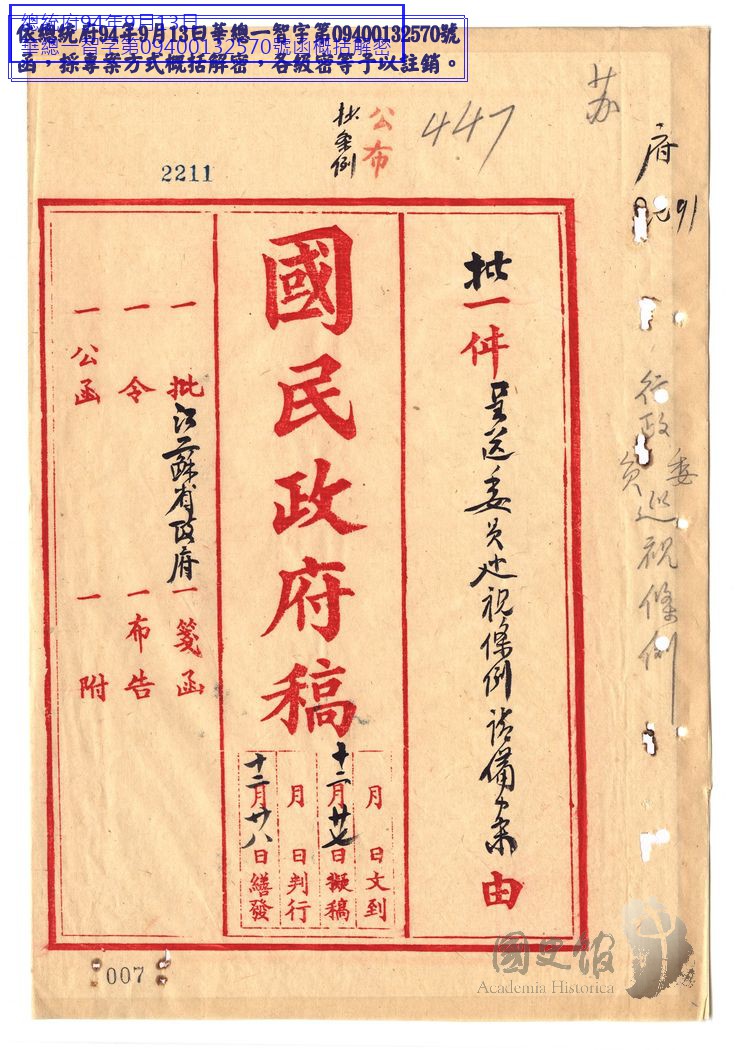 總統府94年9月13日
華總一智字第09400132570號函概括解密
依總統府94年9月13日華總一智字第09400132570號
函，採專案方式概括解密，各級密等予以註銷。
苏
府
行政委員巡視條例
447
公布
2211
批一件呈送委員巡視條例請備案由
國民政府稿
月 日文到
十二月廿七日擬稿
月 日判行
十二月廿八日繕發
一批 江蘇省政府 一箋函
一令 一布告
一公函 一附
007
國史館
Academia Historica